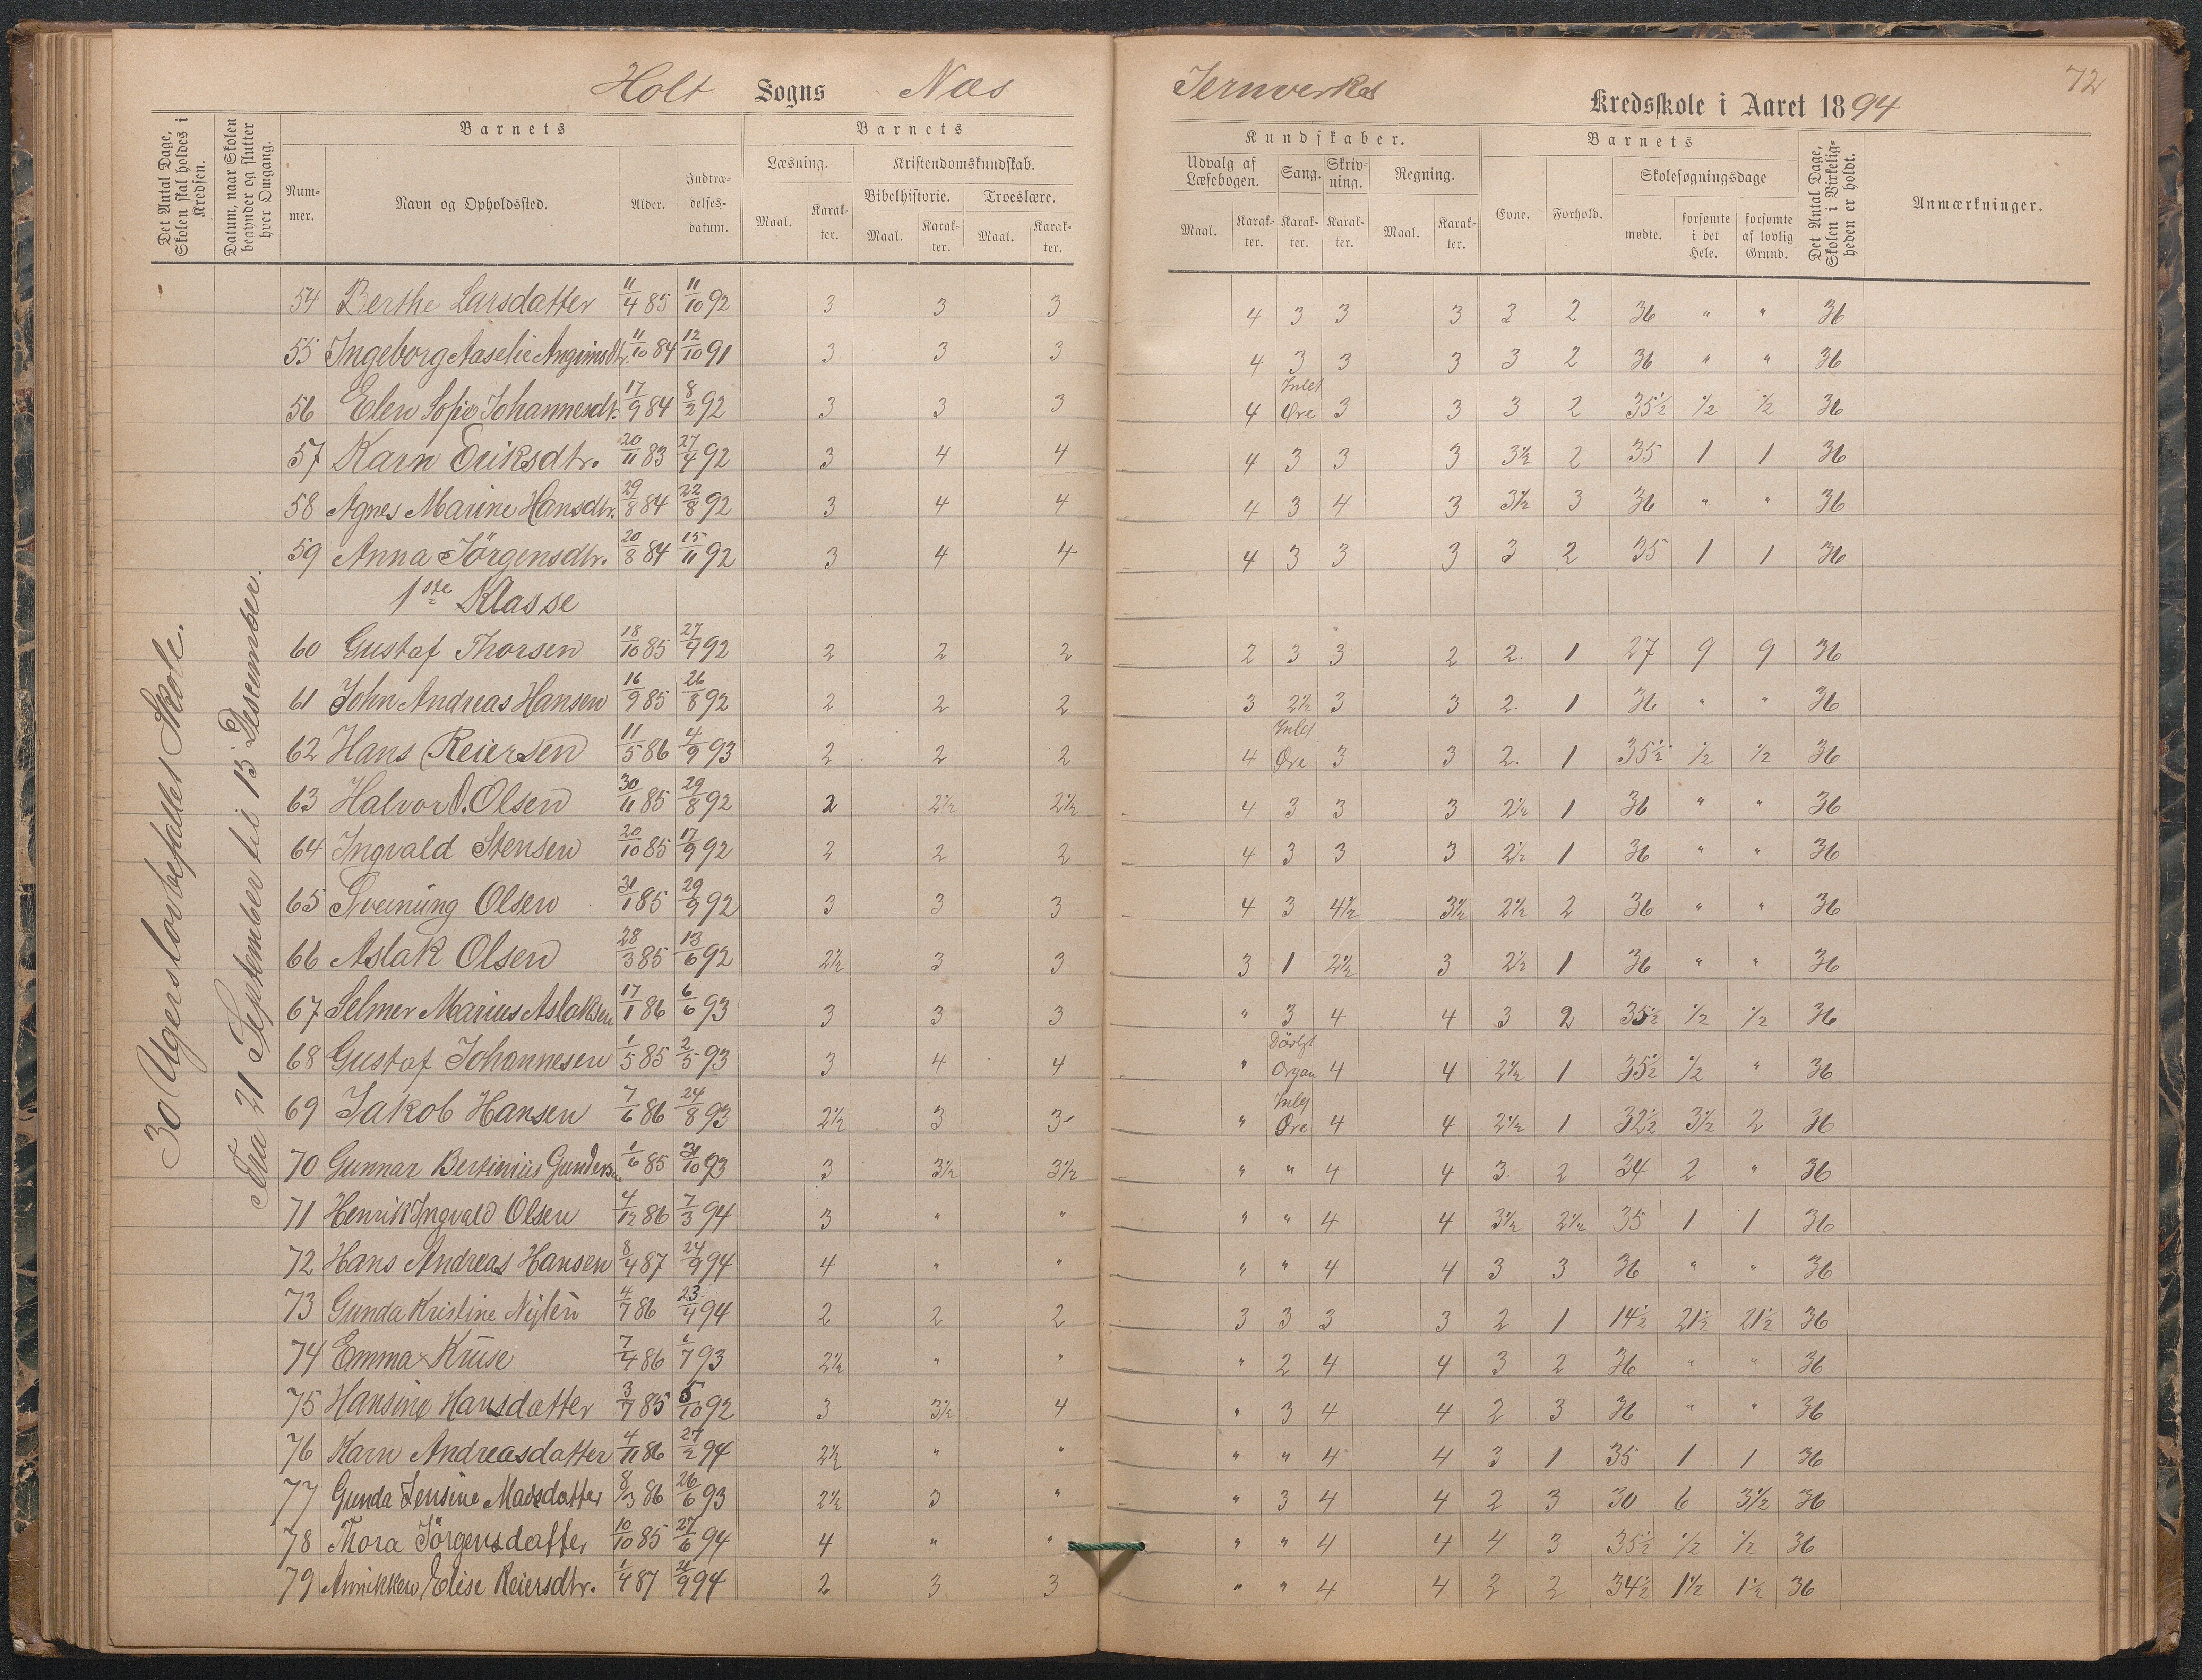 Holt Sogns Næs Jernverks Kredsskole i Aaret 1894
72
Det Antal Dage, Skolen skal holdes i Kredsen.
Datum, naar Skolen begynder og slutter hver Omgang.
Barnets
Nummer.
Navn og Opholdssted.
Alder.
Indtrædelsesdatum.
Barnets
Læsning.
Maal.
Karakter.
Kristendomskundskab.
Bibelhistorie.
Maal.
Karakter.
Troeslære.
Maal.
Karakter.
Kundskaber.
Udvalg af Læsebogen.
Maal.
Karakter.
Sang.
Karakter.
Skrivning.
Karakter.
Regning.
Maal.
Karakter.
Barnets
Evne.
Forhold.
Skolesøgningsdage
mødte.
forsømte i det Hele.
forsømte af lovlig Grund.
Det Antal Dage, Skolen i Virkeligheden er holdt.
Anmærkninger.
30 Ugers lovbefalet Skole.
Fra 21 September til 15 Desember.
54 Berthe Larsdatter 11/4 85 11/10 92 3 3 3 4 3 3 3 3 2 36 " " 36
55 Ingeborg Aaselie 11/10 84 12/10 91 3 3 3 4 3 3 3 3 2 36 " " 36
56 Elen Sofie Johannesdt. 17/9 84 8/2 92 3 3 3 4 Intet Øre 3 3 3 2 35½ ½ ½ 36
57 Karn Eriksdtr. 20/11 83 27/4 92 3 4 4 4 3 3 3 3½ 2 35 1 1 36
58 Agnes Marine Hansdtr. 29/8 84 22/8 92 3 4 4 4 3 4 3 3½ 3 36 " " 36
59 Anna Jörgensdtr. 20/8 84 15/11 92 3 4 4 4 3 3 3 3 2 35 1 1 36
1ste Klasse
60 Gustaf Thorsen 18/10 85 27/4 92 2 2 2 2 3 3 2 2. 1 27 9 9 36
61 John Andreas Hansen 16/9 85 26/8 92 2 2 2 3 2½ 3 3 2. 1 36 " " 36
62 Hans Reiersen 11/5 86 4/9 93 2 2 2 4 Intet Øre 3 3 2. 1 35½ ½ ½ 36
63 Halvor O. Olsen 30/11 85 29/8 92 2 2½ 2½ 4 3 3 3 2½ 1 36 " " 36
64 Ingvald Stensen 20/10 85 17/9 92 2 2 2 4 3 3 3 2½ 1 36 " " 36
65 Sveinung Olsen 31/1 85 29/9 92 3 3 3 4 3 4½ 3½ 2½ 2 36 " " 36
66 Aslak Olsen 28/3 85 13/6 92 2½ 3 3 3 1 2½ 3 2½ 1 36 " " 36
67 Selmer Marius Aslaksen 17/1 86 6/6 93 3 3 3 " 3 4 4 3 2 35½ ½ ½ 36
68 Gustaf Johannesen 1/5 85 2/5 93 3 4 4 " Dårligt Organ 4 4 2½ 1 35½ ½ " 36
69 Jakob Hansen 7/6 86 24/8 93 2½ 3 3 " Intet Øre 4 4 2½ 1 32½ 3½ 2 36
70 Gunnar Bertinius Gundersen 1/6 85 31/10 93 3 3½ 3½ " " 4 4 3. 2 34 2 " 36
71 Henrik Ingvald Olsen 4/12 86 7/3 94 3 " " " " 4 4 3½ 2½ 35 1 1 36
72 Hans Andreas Hansen 8/4 87 24/9 94 4 " " " " 4 4 3 3 36 " " 36
73 Gunda Kristine 4/7 86 23/4 94 2 2 2 3 3 3 3 2 1 14½ 21½ 21½ 36
74 Emma Kruse 7/4 86 1/7 93 2½ " " " 2 4 4 3 2 36 " " 36
75 Hansine Hansdatter 3/7 85 5/10 92 3 3½ 4 " 3 4 4 2 3 36 " " 36
76 Karn Andreasdatter 4/11 86 27/2 94 2½ " " " " 4 4 3 1 35 1 1 36
77 Gunda Jensine Madsdatter 8/3 86 26/6 93 2½ 3 " " 3 4 4 2 3 30 6 3½ 36
78 Thora Jörgensdatter 10/10 85 27/6 94 4 " " " " 4 4 4 3 35½ ½ ½ 36
79 Annikken Elise Reiersdtr. 1/4 87 21/9 94 2 3 3 " " 4 4 3 2 34½ 1½ 1½ 36